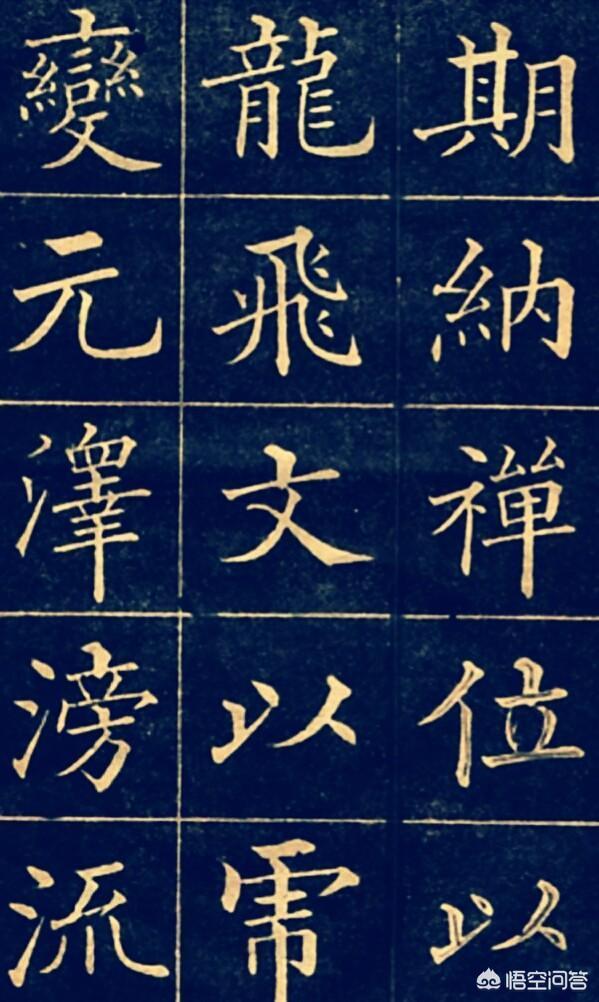 期納禪位以
龍飛文以虎
變元澤滂流
悟空问答